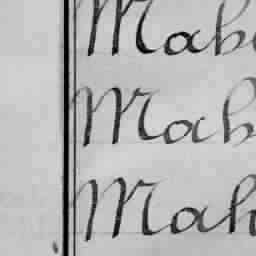 Mab
Mah
Mah